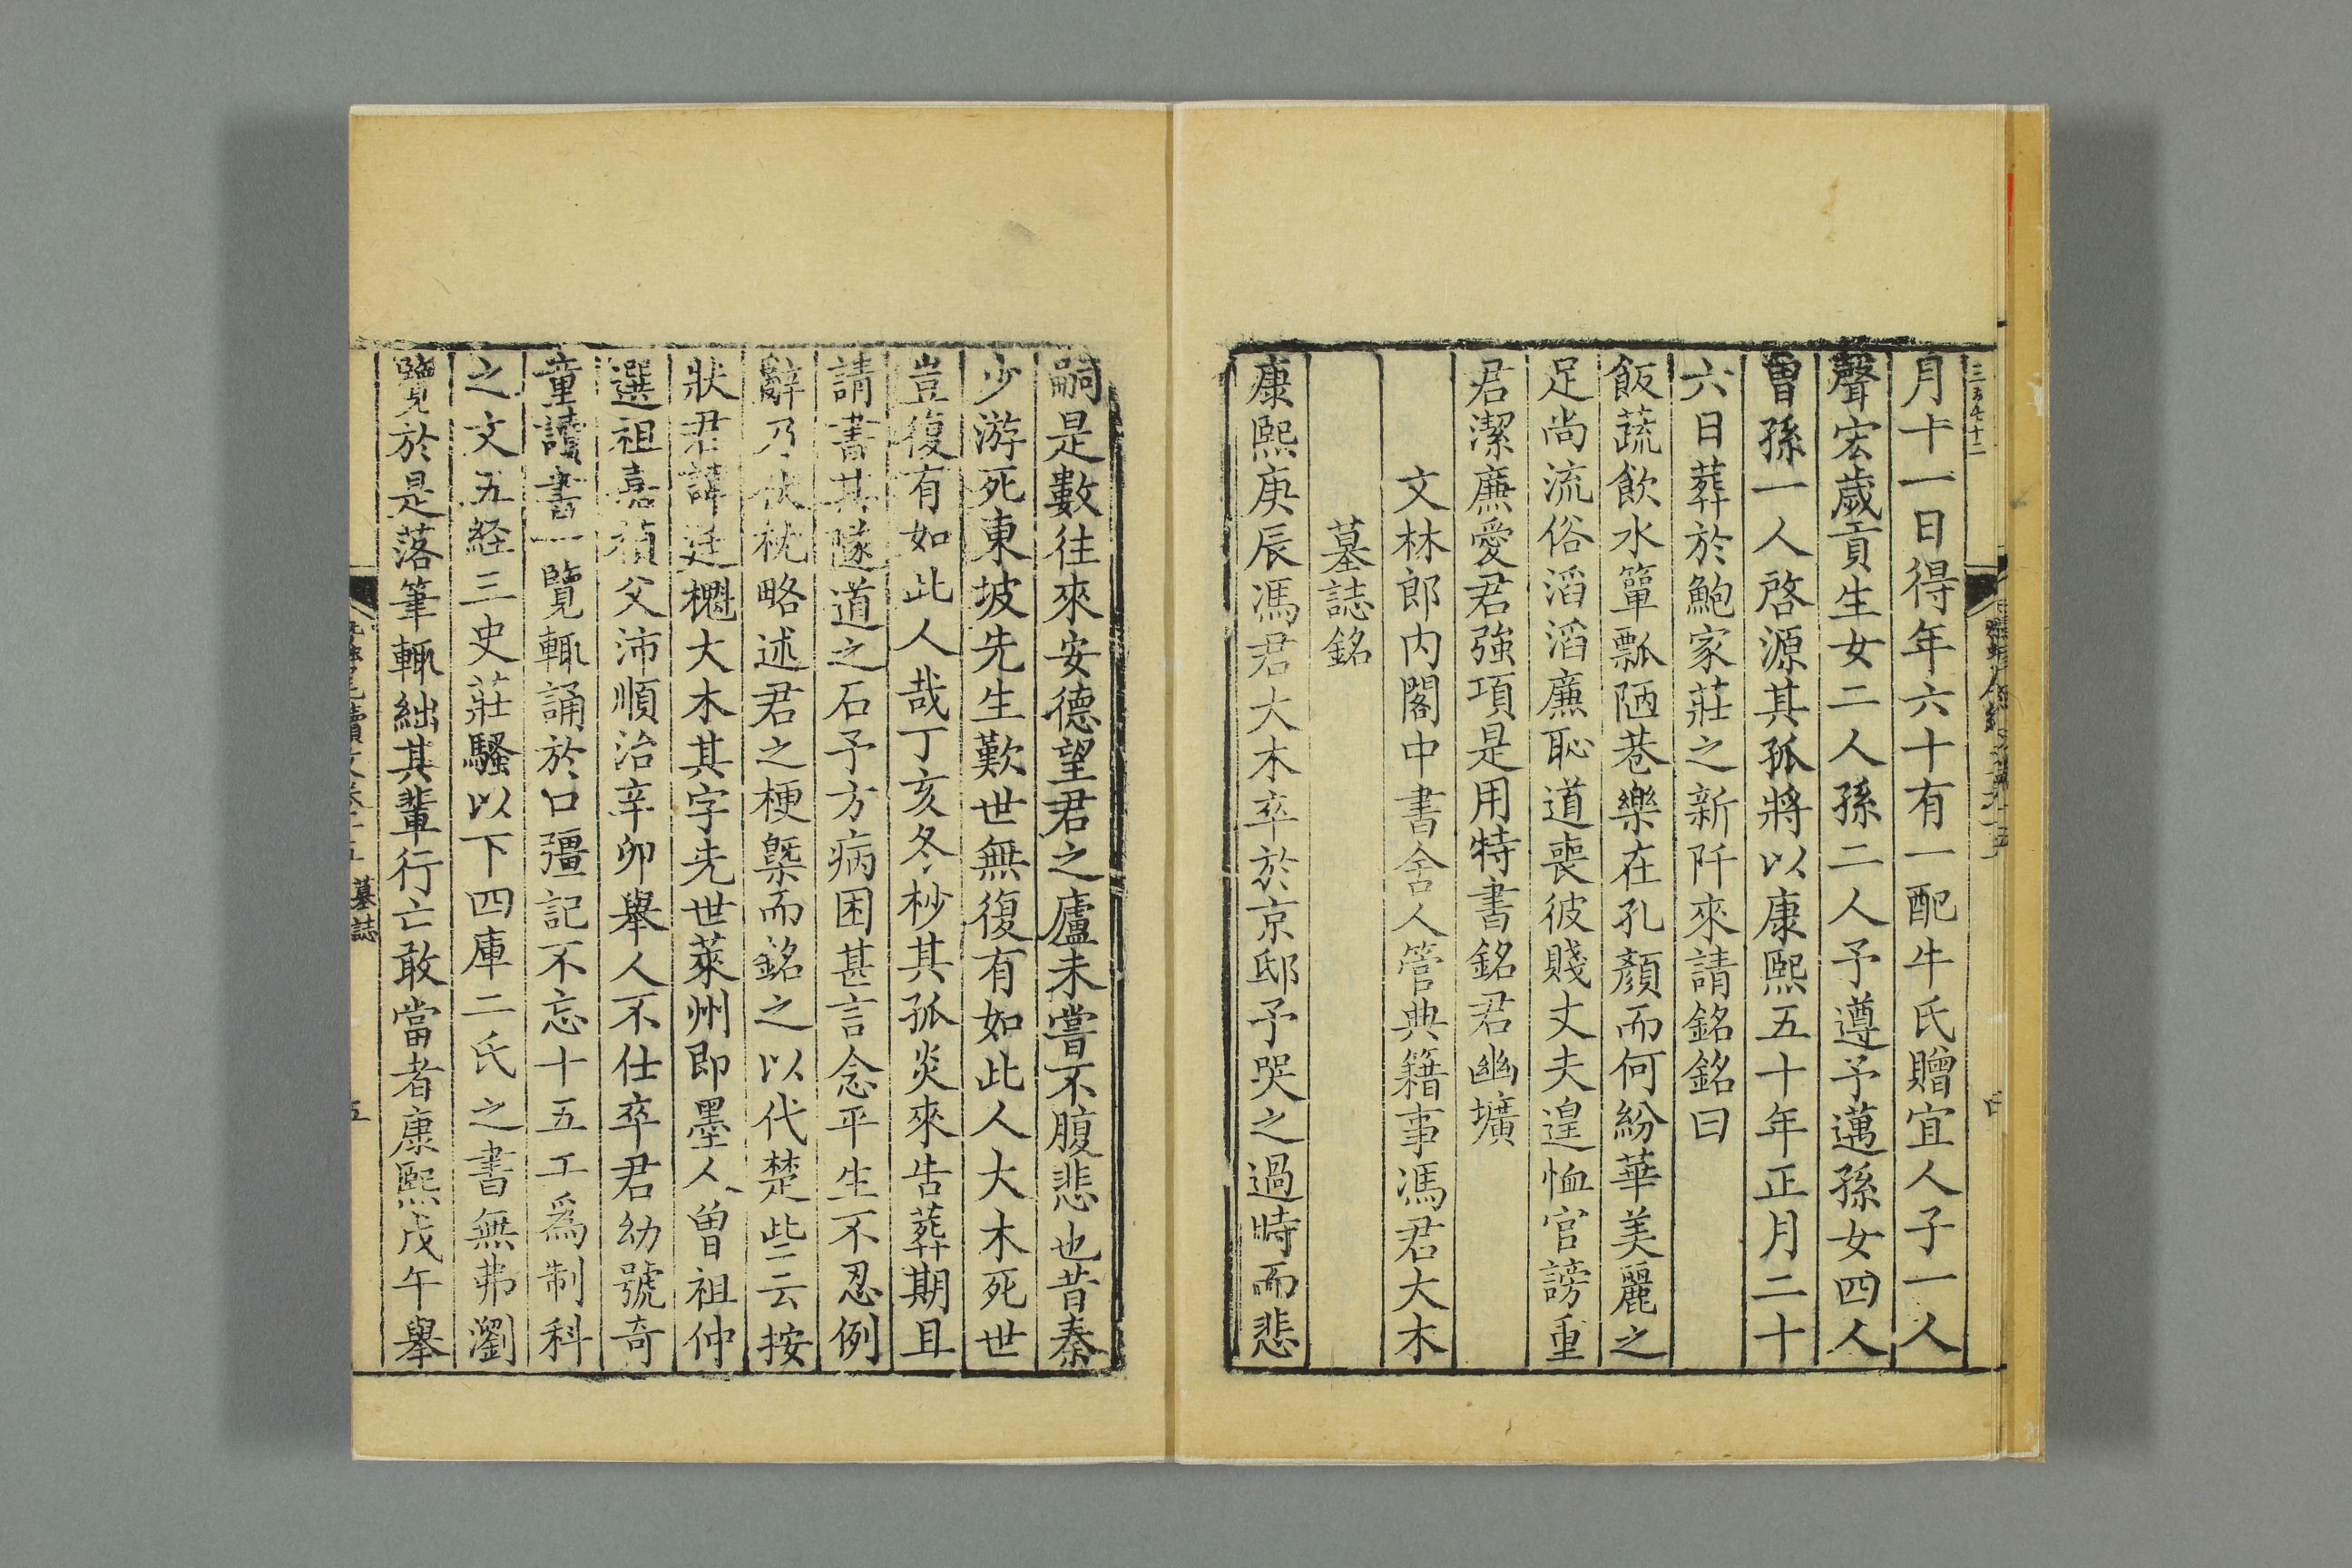 月十一日得年六十有一配牛氏贈宜人子一人
聲宏歲貢生女二人孫二人予遵予邁孫女四人
曾孫一人啓源其孤將以康熙五十年正月二十
六日葬於鮑家莊之新阡來請銘銘曰
飯蔬飲水簞瓢陋巷樂在孔顏而何紛華美麗之
足尚流俗滔滔廉恥道喪彼賤丈夫遑恤官謗重
君潔廉愛君強項是用特書銘君幽壙
文林郎内閣中書舍人管典籍事馮君大木
墓誌銘
康熙庚辰馮君大木卒於京邸予哭之過時而悲
嗣是數往來安德望君之廬未嘗不腹悲也昔秦
少游死東坡先生歎世無復有如此人大木死世
豈復有如此人哉丁亥冬杪其孤炎來告葬期且
請書其隧道之石予方病困甚言念平生不忍例
辭乃伏枕略述君之梗槩而銘之以代楚些云按
狀君諱廷櫆大木其字先世萊州即墨人曾祖仲
選祖嘉禎父沛順治辛卯舉人不仕卒君幼號奇
童讀書一覽輒誦於口彊記不忘十五工爲制科
之文五経三史莊騷以下四庫二氏之書無弗瀏
覽於是落筆輒絀其輩行亡敢當者康熙戊午舉
墓誌
五